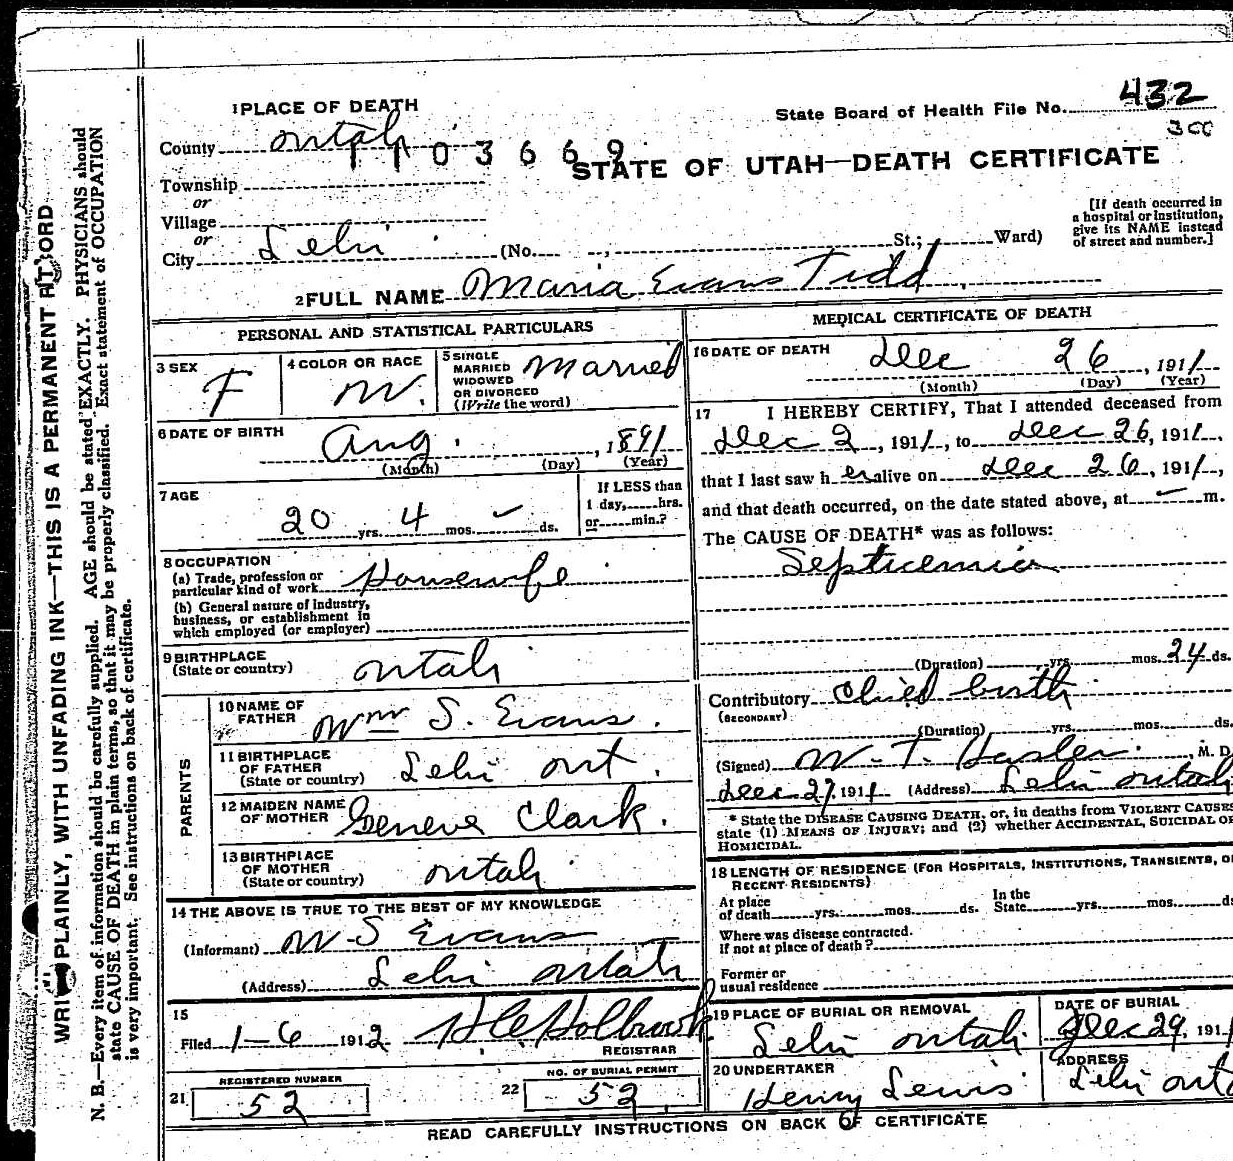 1 PLACE OF DEATH
State Board of Health File No. 432
300
County Utah
1103669
STATE OF UTAH—DEATH CERTIFICATE
Township
or
Village
or
City Lehi (No. St.; Ward)
[If death occurred in a hospital or institution, give its NAME instead of street and number.]
2 FULL NAME Maria Evans Tidd
PERSONAL AND STATISTICAL PARTICULARS
3 SEX F
4 COLOR OR RACE W.
5 SINGLE MARRIED WIDOWED OR DIVORCED (Write the word) Married
6 DATE OF BIRTH Aug. , 1891
(Month) (Day) (Year)
7 AGE 20 yrs. 4 mos. ds.
If LESS than 1 day, hrs. or min.?
8 OCCUPATION
(a) Trade, profession or particular kind of work Housewife
(b) General nature of Industry, business, or establishment in which employed (or employer)
9 BIRTHPLACE (State or country) Utah
PARENTS
10 NAME OF FATHER Wm S. Evans.
11 BIRTHPLACE OF FATHER (State or country) Lehi Ut.
12 MAIDEN NAME OF MOTHER Geneve Clark.
13 BIRTHPLACE OF MOTHER (State or country) Utah
14 THE ABOVE IS TRUE TO THE BEST OF MY KNOWLEDGE
(Informant) W S Evans
(Address) Lehi Utah
15
Filed 1-6 1912 Holbrook
REGISTRAR
REGISTERED NUMBER
21 52
NO. OF BURIAL PERMIT
22 52
MEDICAL CERTIFICATE OF DEATH
16 DATE OF DEATH Dec 26, 1911
(Month) (Day) (Year)
17 I HEREBY CERTIFY, That I attended deceased from
Dec 2, 1911, to Dec 26, 1911,
that I last saw her alive on Dec 26, 1911,
and that death occurred, on the date stated above, at m.
The CAUSE OF DEATH* was as follows:
Septicemia
(Duration) yrs. mos. 24 ds.
Contributory Child birth
(SECONDARY)
(Duration) yrs. mos. ds.
(Signed) W. T. Hasler. , M. D
Dec 27, 1911 (Address) Lehi Utah
* State the DISEASE CAUSING DEATH, or, in deaths from VIOLENT CAUSES
state (1) MEANS OF INJURY; and (2) whether ACCIDENTAL, SUICIDAL OR
HOMICIDAL.
18 LENGTH OF RESIDENCE (FOR HOSPITALS, INSTITUTIONS, TRANSIENTS, OR
RECENT RESIDENTS)
At place of death yrs. mos. ds. In the State yrs. mos. ds
Where was disease contracted.
If not at place of death?
Former or
usual residence
19 PLACE OF BURIAL OR REMOVAL
Lehi Utah
DATE OF BURIAL
Dec 29, 191
20 UNDERTAKER
Henry Lewis
ADDRESS
Lehi Uta
READ CAREFULLY INSTRUCTIONS ON BACK OF CERTIFICATE
WRITE PLAINLY, WITH UNFADING INK—THIS IS A PERMANENT RECORD
N. B.—Every item of information should be carefully supplied. AGE should be stated EXACTLY. PHYSICIANS should
state CAUSE OF DEATH in plain terms, so that it may be properly classified. Exact statement of OCCUPATION
is very important. See instructions on back of certificate.